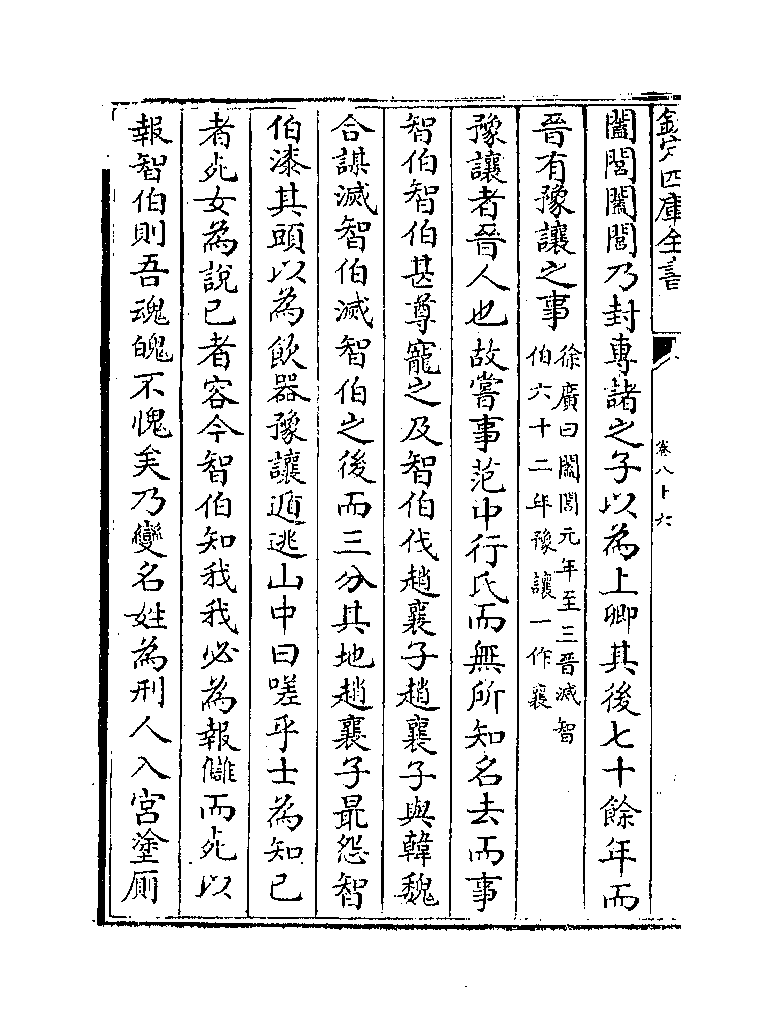 欽定四庫全書
卷八十六
闔閭闔閭乃封專諸之子以為上卿其後七十餘年而
晉有豫讓之事
徐廣曰闔閭元年至三晉滅智
伯六十二年豫讓一作襄
豫讓者晉人也故嘗事范中行氏而無所知名去而事
智伯智伯甚尊寵之及智伯伐趙襄子趙襄子與韓魏
合謀滅智伯滅智伯之後而三分其地趙襄子最怨智
伯漆其頭以為飲器豫讓遁逃山中曰嗟乎士為知己
者死女為說己者容今智伯知我我必為報讎而死以
報智伯則吾魂魄不愧矣乃變名姓為刑人入宮塗厠